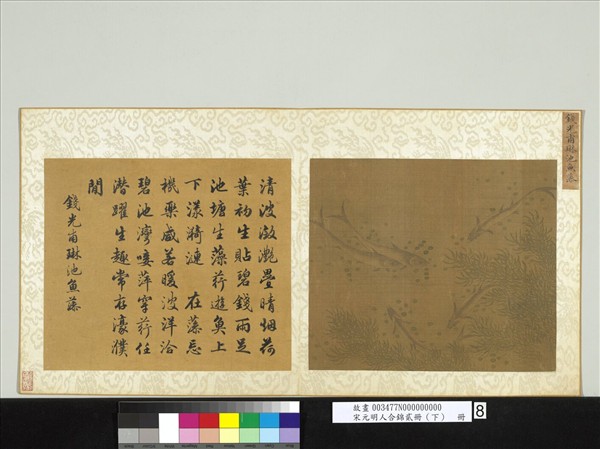 錢光甫琳池魚藻
清波瀲灔疊晴烟荷
葉初生貼碧錢雨足
池塘生藻荇遊魚上
下漾漪漣 在藻忘
機樂咸若暖波洋洽
碧池灣唼萍穿荇任
潛躍生趣常存濠濮
間
錢光甫琳池魚藻
故畫 003477N000000000
宋元明人合錦貳冊(下) 冊
8